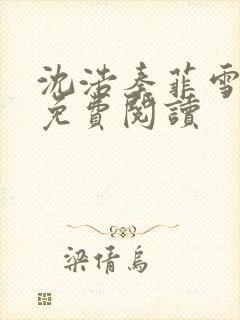 沈浩秦菲雪
免費閱讀
梁倩烏